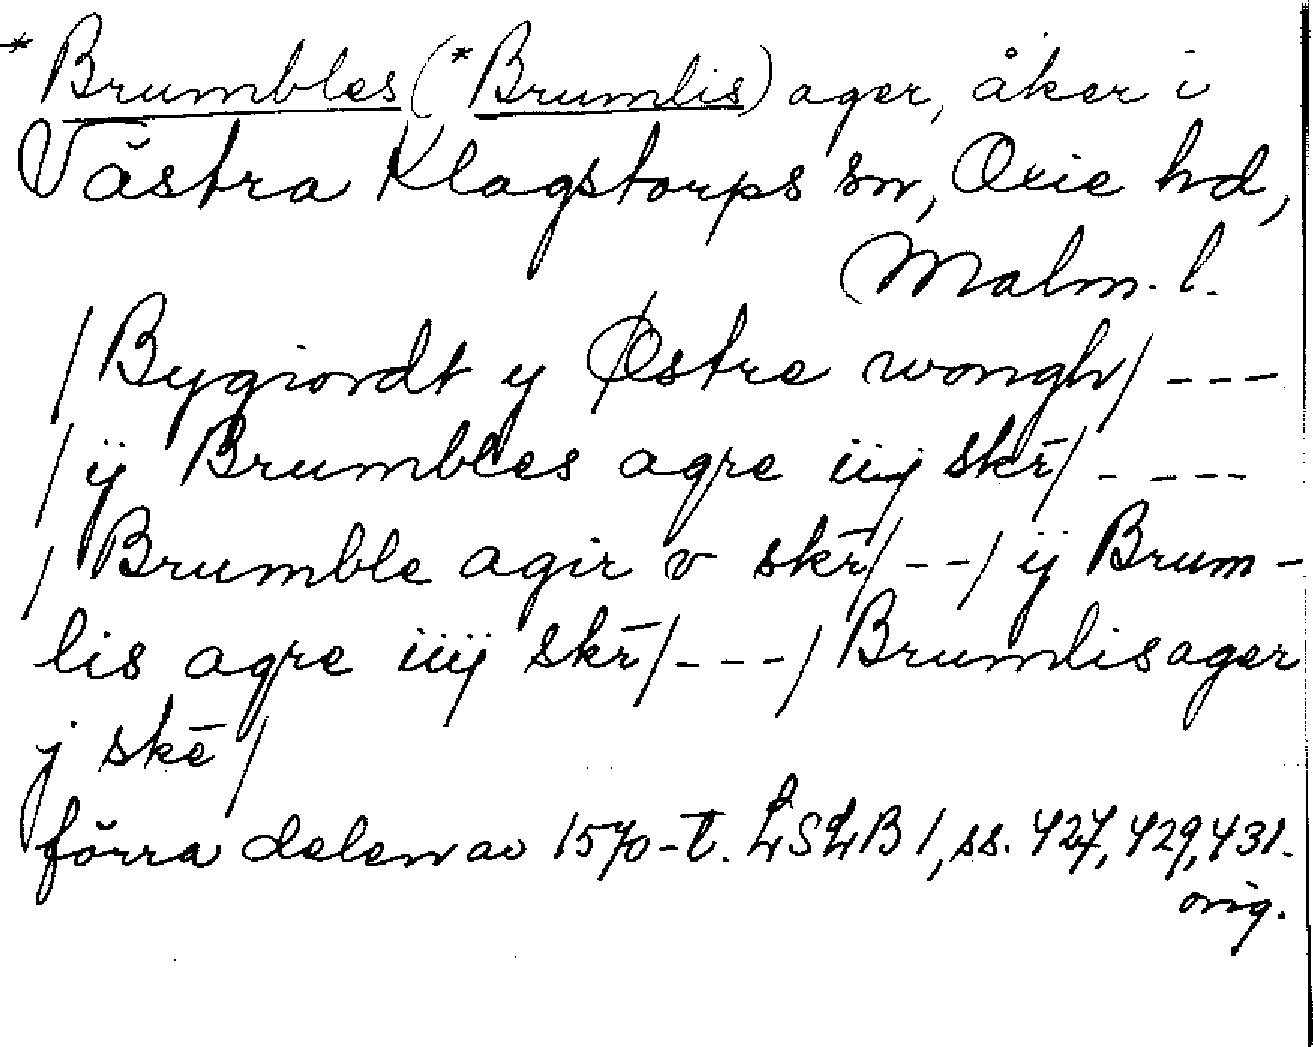 *Brumbles (*Brumlis) ager, åker i
Västra Klagstorps sn, Oxie hd,
Malm. l.
/Bygiordt y Østre wongh/ ---
/ÿ Brumbles agre iiij skr̄/ - ---
/Brumble agir v skr̄/ --/ ÿ Brum-
lis agre iiij skr̄/ ---/ Brumlisager
j skē/
förra delen av 1570-t. LSLB 1, ss. 427, 429, 431.
orig.